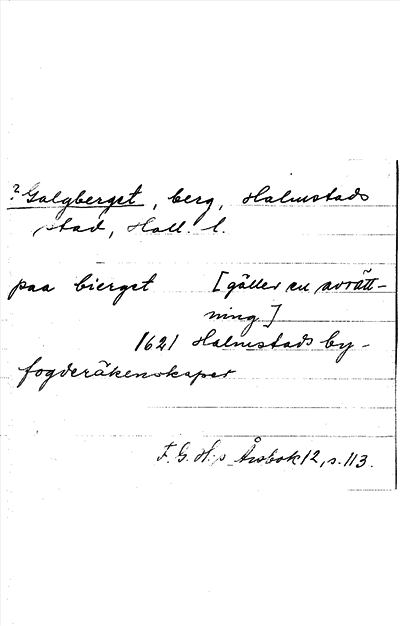 ? Galgberget, berg, Halmstads
stad, Hall. l.
paa bierget [gäller en avrätt-
ning]
1621 Halmstads by-
fogderäkenskaper
F.G.H:s Årsbok 12, s. 113.